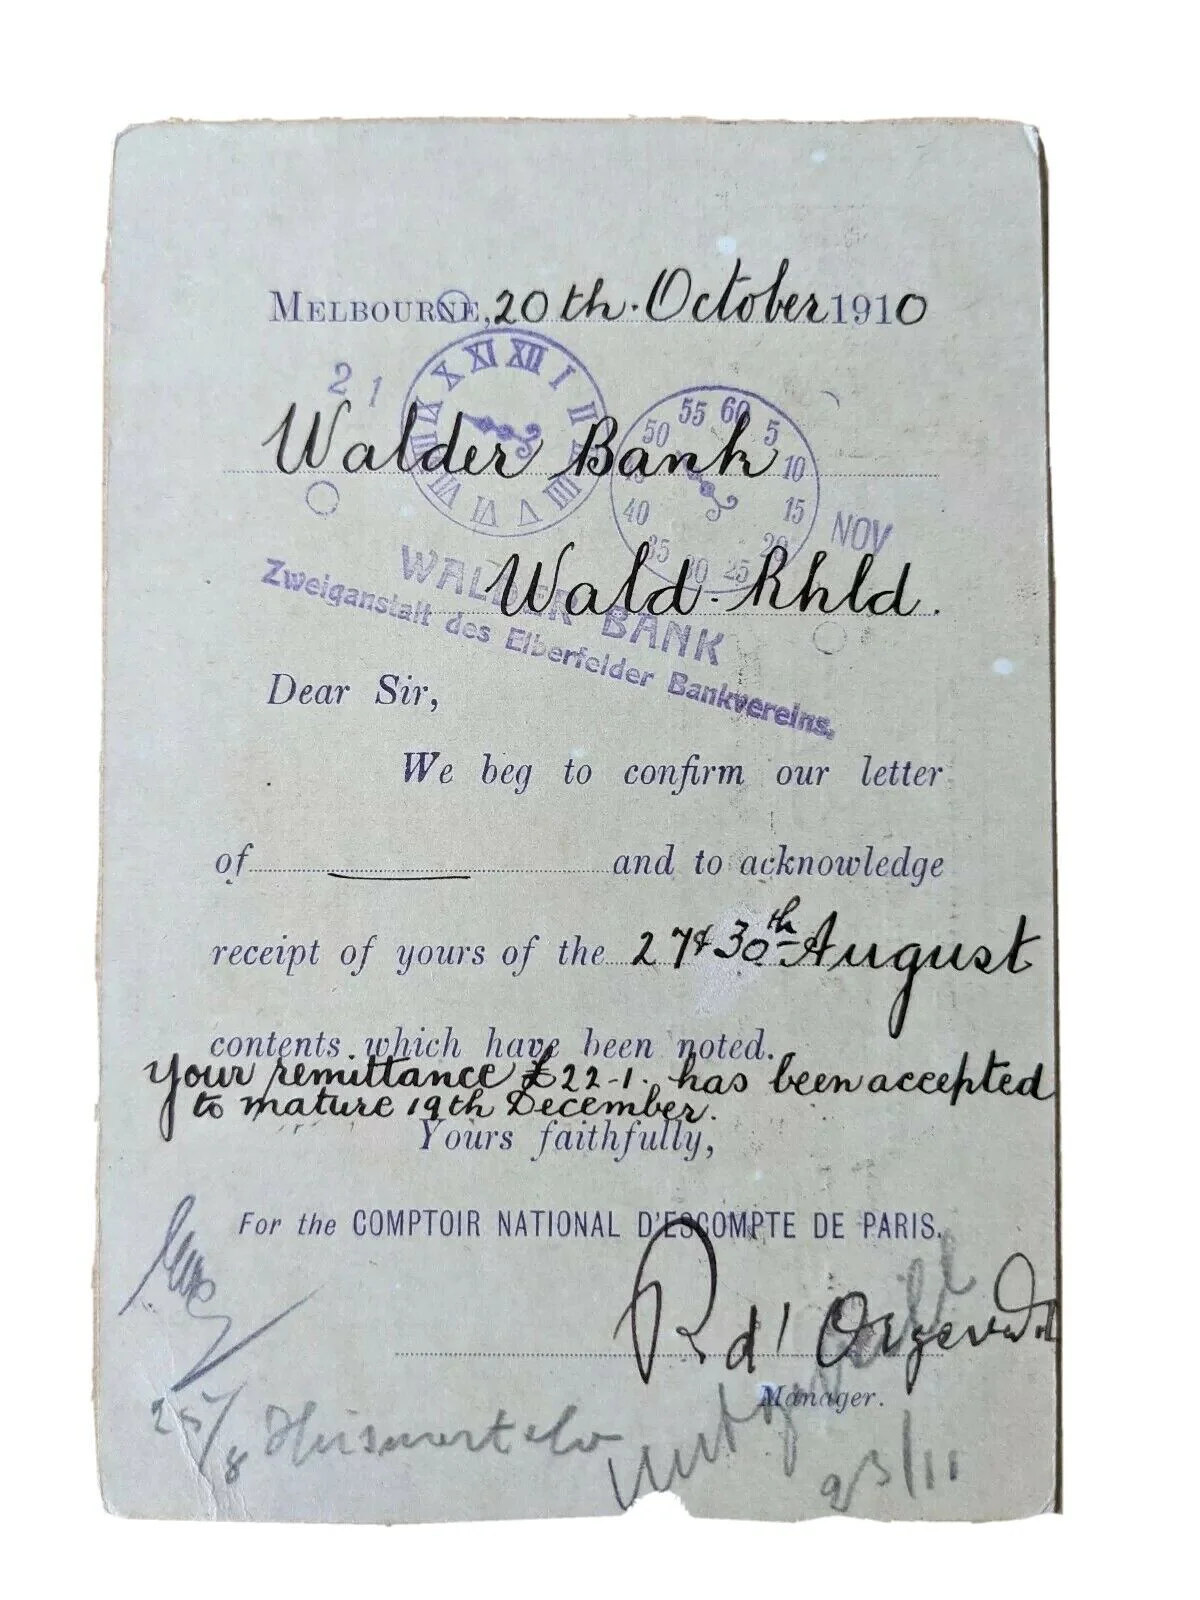 MELBOURNE, 20th. October 1910
21
XII I II III IIII V VI VII VIII IX X XI
60 5 10 15 20 25 30 35 40 45 50 55
NOV
Walder Bank
Wald-Rhld.
WALDER BANK
Zweiganstalt des Elberfelder Bankvereins.
Dear Sir,
We beg to confirm our letter
of and to acknowledge
receipt of yours of the 27 & 30th August
contents which have been noted.
Your remittance £22-1. has been accepted
to mature 19th December.
Yours faithfully,
For the COMPTOIR NATIONAL D'ESCOMPTE DE PARIS.
R d'
Manager.
25/8
23/11